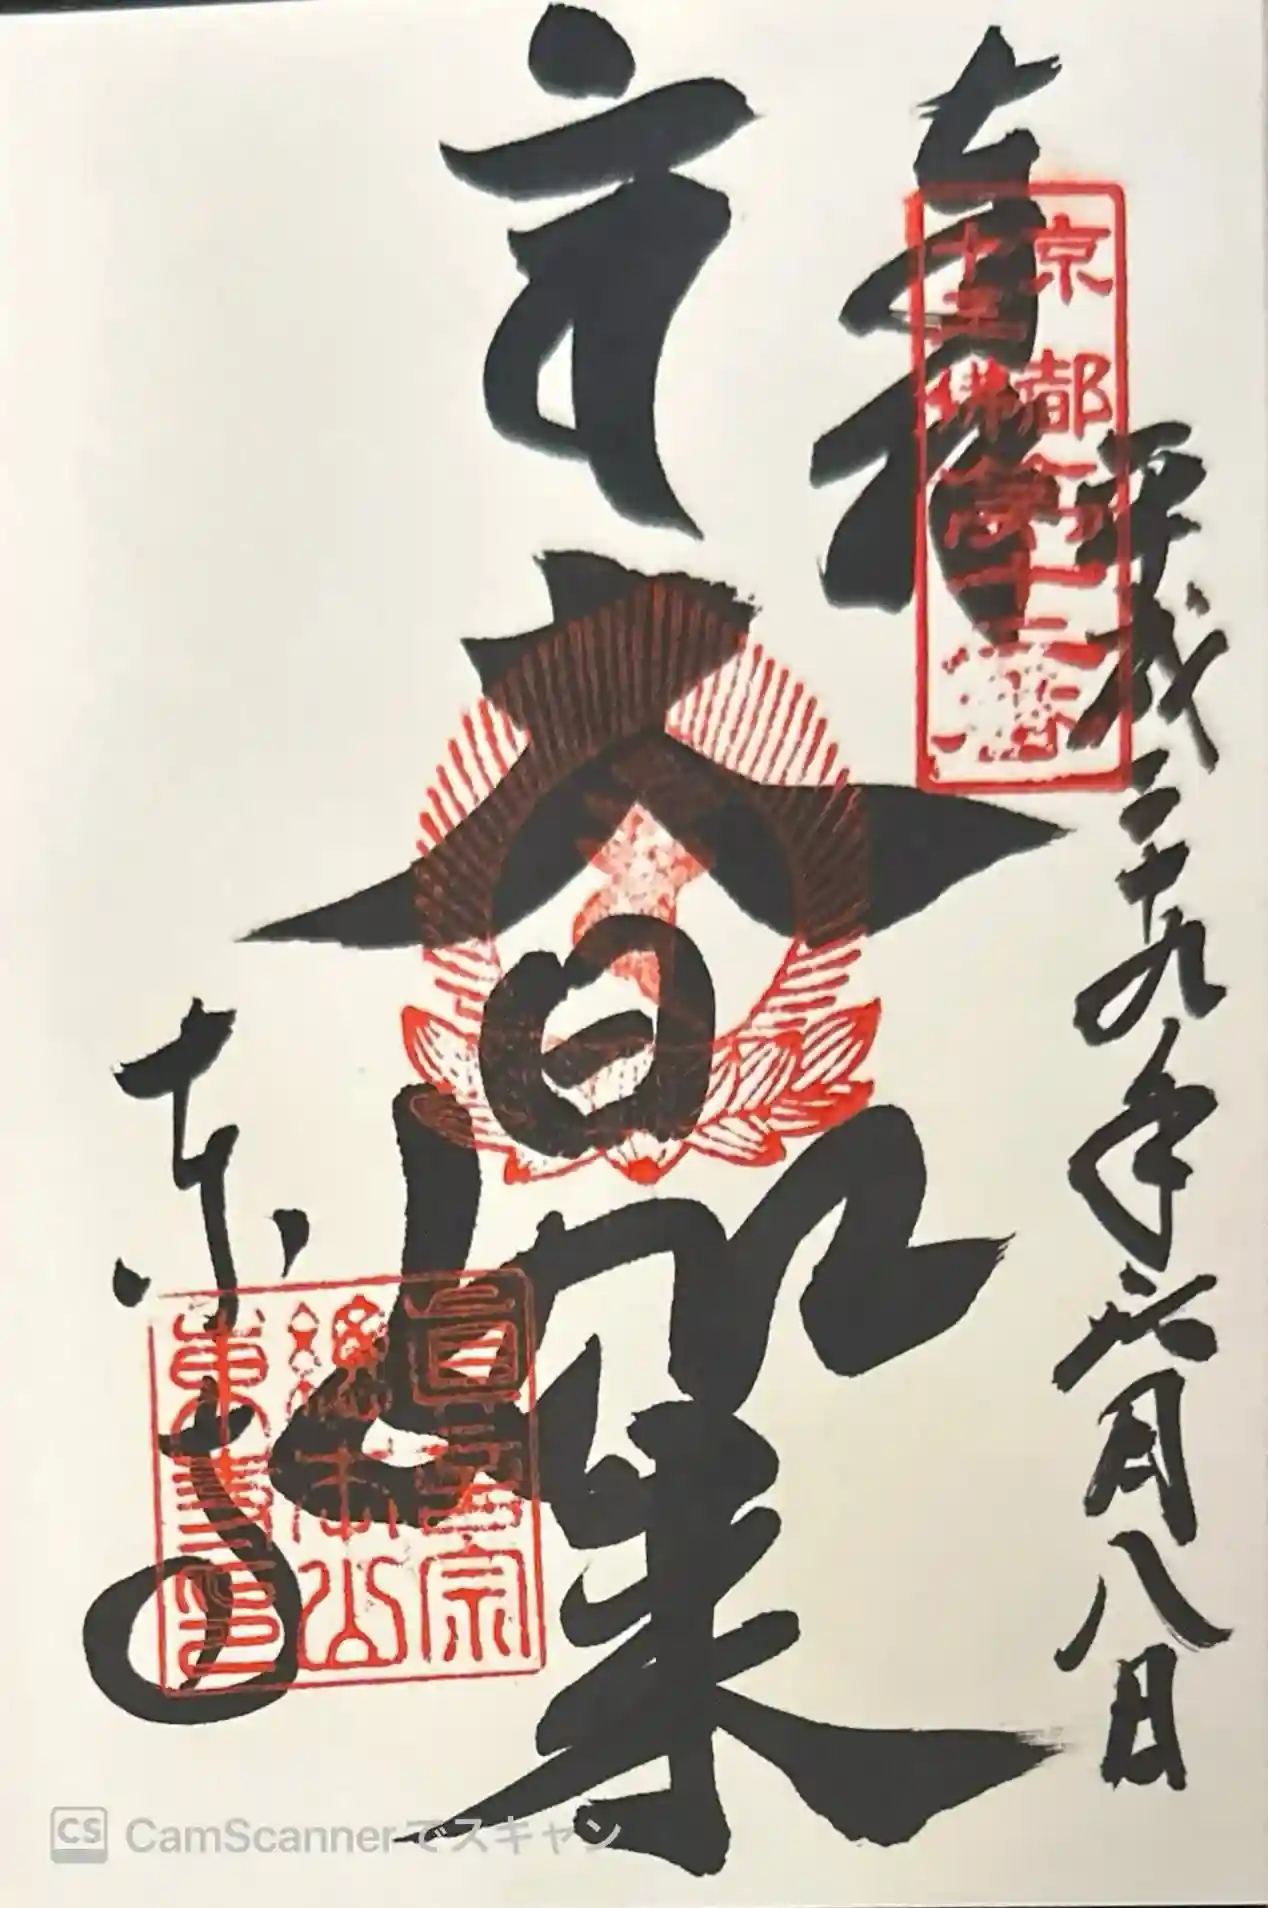 奉拝
京都
十三佛
第十二番
平成二十九年六月八日
大日如来
東寺
眞言宗
總本山
東寺印
CS CamScannerでスキャン